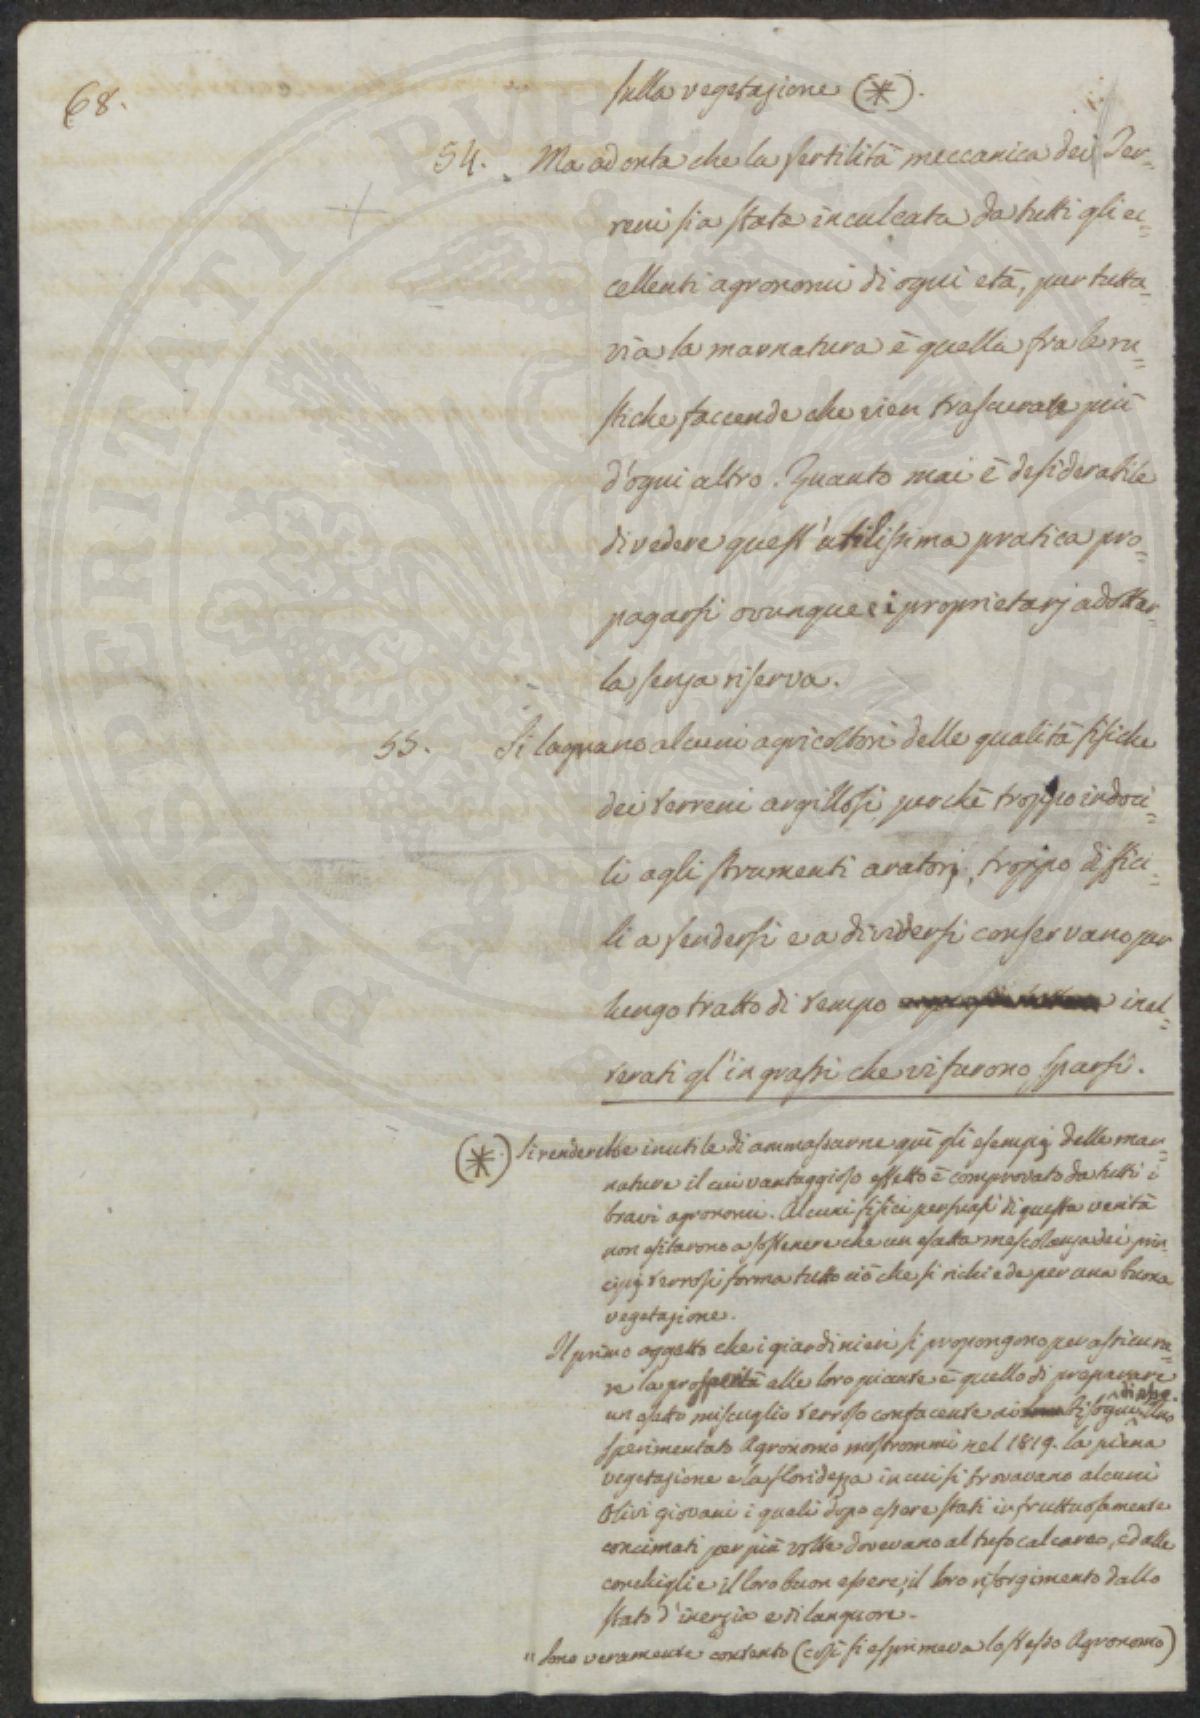 68.
sulla vegetazione (*).
54. Ma ad onta che la fertilità meccanica dei Ter=
reni sia stata inculcata da tutti gli ec=
cellenti agronomi di ogni età, pur tutta=
via la marnatura è quella fra le ru=
stiche faccende che vien trascurata più
d'ogni altro. Quanto mai è desiderabile
di vedere quest'utilissima pratica pro=
pagarsi ovunque e i proprietarj adottar=
la senza riserva.
55. Si lagnano alcuni agricoltori delle qualità fisiche
dei terreni argillosi, perchè troppo indoci=
li agli strumenti aratorj, troppo diffici=
li a fendersi e a dividersi conservano per
lungo tratto di tempo inal=
terati gl'ingrassi che vi furono sparsi.
(*) Si renderebbe inutile di ammassarne quì gli esempj delle mar=
nature il cui vantaggioso effetto è comprovato da tutti i
bravi agronomi. Alcuni fisici persuasi di questa verità
non esitarono a sostenere che un esatta mescolanza dei prin=
cipj terrosi forma tutto ciò che si richiede per una buona
vegetazione.
Il primo oggetto che i giardinieri si propongono per assicura=
re la prosperità alle loro piante è quello di preparare
un esatto miscuglio terroso confacente ai bisogni
sperimentato Agronomo mostrommi nel 1819. la piena
vegetazione e la floridezza in cui si trovavano alcuni
Olivi giovani i quali dopo essere stati infruttuosamente
concimati per più volte dovevano al tufo calcareo, ed alle
conchiglie il loro buon essere, il loro risorgimento dallo
stato d'inerzia e di languore.
" Sono veramente contento (così si esprimeva lo stesso Agronomo)
PROSPERITATI PVBLICAE